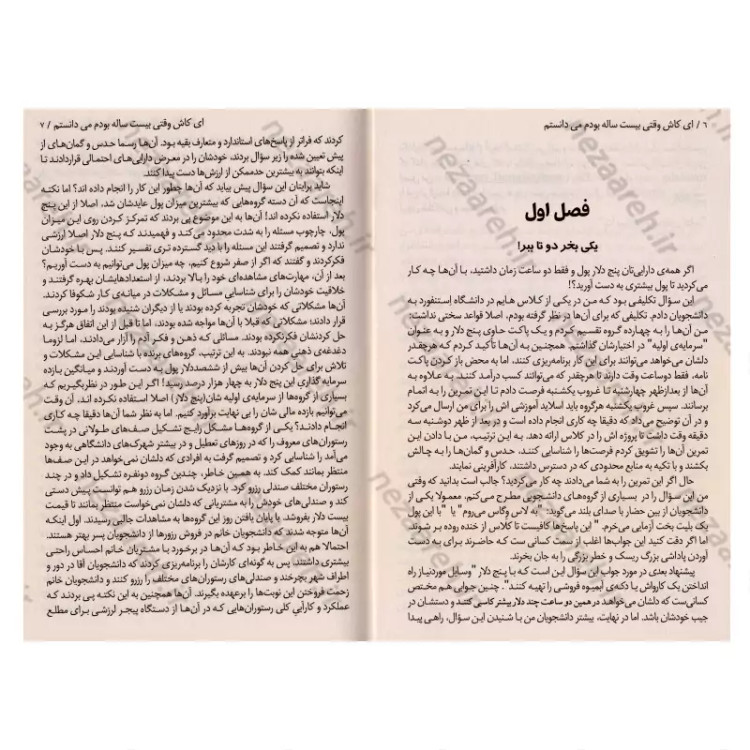 ۶ / ای کاش وقتی بیست ساله بودم می دانستم
فصل اول
یکی بخر دو تا ببر!
اگر همه‌ی دارایی‌تان پنج دلار پول و فقط دو ساعت زمان داشتید، با آن‌ها چه کار
می‌کردید تا پول بیشتری به دست آورید؟!
این سؤال تکلیفی بود که من در یکی از کلاس هایم در دانشگاه استنفورد به
دانشجویان دادم. تکلیفی که برای آن‌ها در نظر گرفته بودم، اصلا قواعد سختی نداشت:
من آن‌ها را به چهارده گروه تقسیم کردم و یک پاکت حاوی پنج دلار و به عنوان
"سرمایه‌ی اولیه" در اختیارشان گذاشتم. همچنین به آن‌ها تأکید کردم که هرچقدر
دلشان می‌خواهد می‌توانند برای این کار برنامه‌ریزی کنند، اما به محض باز کردن پاکت
نامه، فقط دوساعت وقت دارند تا هرچقدر که می‌توانند کسب درآمد کنند. به علاوه به
آن‌ها از بعدازظهر چهارشنبه تا غروب یکشنبه فرصت دادم تا این تمرین را به اتمام
برسانند. سپس غروب یکشنبه هرگروه باید اسلاید آموزشی اش را برای من ارسال می‌کرد
و در آن توضیح می‌داد که دقیقا چه کاری انجام داده است و در بعد از ظهر دوشنبه سه
دقیقه وقت داشت تا پروژه اش را در کلاس ارائه دهد. به این ترتیب، من با دادن این
تمرین آن‌ها را تشویق کردم فرصت‌ها را شناسایی کنند، و گمان‌ها را به چالش
بکشند و با تکیه به منابع محدودی که در دسترس داشتند، کارآفرینی نمایند.
حال اگر این تمرین را به شما می‌دادند چه کار می‌کردید؟ جالب است بدانید که وقتی
من این سؤال را در بسیاری از گروه‌های دانشجویی مطرح می‌کنم، معمولا یکی از
دانشجویان از بین حضار با صدای بلند می‌گوید: "به لاس وگاس می‌روم" یا "با این پول
یک بلیت بخت آزمایی می‌خرم." این پاسخ‌ها کافیست تا کلاس از خنده روده بر شوند.
اما دقت کنید این جواب‌ها اغلب از سمت کسانی ست که حاضرند برای به دست
آوردن پاداشی بزرگ ریسک و خطر بزرگی را به جان بخرند.
پیشنهاد بعدی در مورد جواب این سؤال این است که با پنج دلار "وسایل موردنیاز راه
انداختن یک کارواش یا دکه‌ی آبمیوه فروشی را تهیه کنند". چنین جوابی هم مختص
کسانی‌ست که دلشان می‌خواهد در همین دو ساعت چند دلار بیشتر کاسبی کنند و دستشان در
جیب خودشان باشد. اما در نهایت، بیشتر دانشجویان من با شنیدن این سؤال، راهی پیدا
ای کاش وقتی بیست ساله بودم می دانستم / ۷
کردند که فراتر از پاسخ‌های استاندارد و متعارف بقیه بود. آن‌ها رسما حدس و گمان‌های از
پیش تعیین شده را زیر سؤال بردند، خودشان را در معرض دارایی‌های احتمالی قراردادند تا
اینکه بتوانند به بیشترین حدممکن از ارزش‌ها دست پیدا کنند.
شاید برایتان این سؤال پیش بیاید که آن‌ها چطور این کار را انجام داده اند؟ اما نکته
اینجاست که آن دسته گروه‌هایی که بیشترین میزان پول عایدشان شد، اصلا از این پنج
دلار استفاده نکرده اند! آن‌ها به این موضوع پی بردند که تمرکز کردن روی این میزان
پول، چارچوب مسئله را به شدت محدود می‌کند و فهمیدند که پنج دلار اصلا ارزشی
ندارد و تصمیم گرفتند این مسئله را با دید گسترده تری تفسیر کنند. پس با خودشان
فکرکردند و گفتند که اگر از صفر شروع کنیم، چه میزان پول می‌توانیم به دست آوریم؟
بعد از آن، مهارت‌های مشاهده‌ای خود را بالا بردند، از استعدادهایشان بهره گرفتند و
خلاقیت خودشان را برای شناسایی مسائل و مشکلات در میانه‌ی کار شکوفا کردند.
آن‌ها مشکلاتی که خودشان تجربه کرده بودند یا از دیگران شنیده بودند را مورد بررسی
قرار دادند؛ مشکلاتی که قبلا با آن‌ها مواجه شده بودند، اما تا قبل از این اتفاق هرگز به
حل کردنشان فکرنکرده بودند. مسائلی که ذهن و فکر آدم را آزار می‌دادند، اما لزوما
دغدغه‌ی ذهنی همه نبودند. به این ترتیب، گروه‌های برنده با شناسایی این مشکلات و
تلاش برای حل کردن آن‌ها بیش از ششصددلار پول به دست آوردند و میانگین بازده
سرمایه گذاریِ این پنج دلار به چهار هزار درصد رسید! اگر این طور در نظربگیریم که
بسیاری از گروه‌ها از سرمایه‌ی اولیه شان (پنج دلار) اصلا استفاده نکرده اند، آن وقت
می‌توانیم بازده مالی شان را بی نهایت برآورد کنیم. اما به نظر شما آن‌ها دقیقا چه کاری
انجام دادند؟ یکی از گروه‌ها مشکل رایج تشکیل صف‌های طولانی در پشت
رستوران‌های معروف را که در روزهای تعطیل و در بیشتر شهرک‌های دانشگاهی به وجود
می‌آمد را شناسایی کرد و تصمیم گرفت به افرادی که دلشان نمی‌خواهد در این صف‌ها
منتظر بمانند کمک کند. به همین خاطر، چندین گروه دونفره تشکیل داد و در چند
رستوران مختلف صندلی رزرو کرد. با نزدیک شدن زمان رزرو هم توانست پیش دستی
کند و صندلی‌های خودش را به مشتریانی که دلشان نمی‌خواست منتظر بمانند تا قیمت
بیست دلار بفروشد. با پایان یافتن روز این گروه‌ها به مشاهدات جالبی رسیدند. اول اینکه
آن‌ها متوجه شدند که دانشجویان خانم در فروش رزورها از دانشجویان پسر بهتر هستند.
احتمالا هم به این خاطر بود که آن‌ها در برخورد با مشتریان خانم احساس راحتی
بیشتری داشتند. پس به گونه‌ای کارشان را برنامه‌ریزی کردند که دانشجویان آقا در دور و
اطراف شهر بچرخند و صندلی‌های رستوران‌های مختلف را رزرو کنند و دانشجویان خانم
زحمت فروختن این نوبت‌ها را برعهده بگیرند. آن‌ها همچنین به این نکته پی بردند که
عملکرد و کارآیی کلی رستوران‌هایی که در آن‌ها از دستگاه پیجر لرزشی برای مطلع
nezaareh.ir